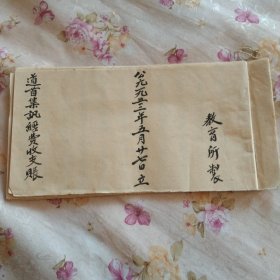 教育所製
公元一九五三年五月廿七日立
道首集訊經費收支賬